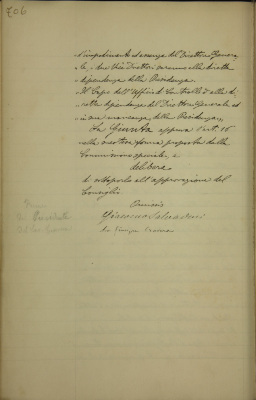 706
d'impedimento ed assenza del Direttore Genera
le, i due Vice Direttori saranno alla diretta
dipendenza della Presidenza.
Il Capo dell'Ufficio di Controllo è alla di
retta dipendenza del Direttore Generale ed
in sua mancanza della Presidenza,,
La Giunta approva l'art. 16
nella nuova forma proposta dalla
Commissione speciale, e
delibera
di sottoporlo all'approvazione del
Consiglio.
Giacomo Salvadori